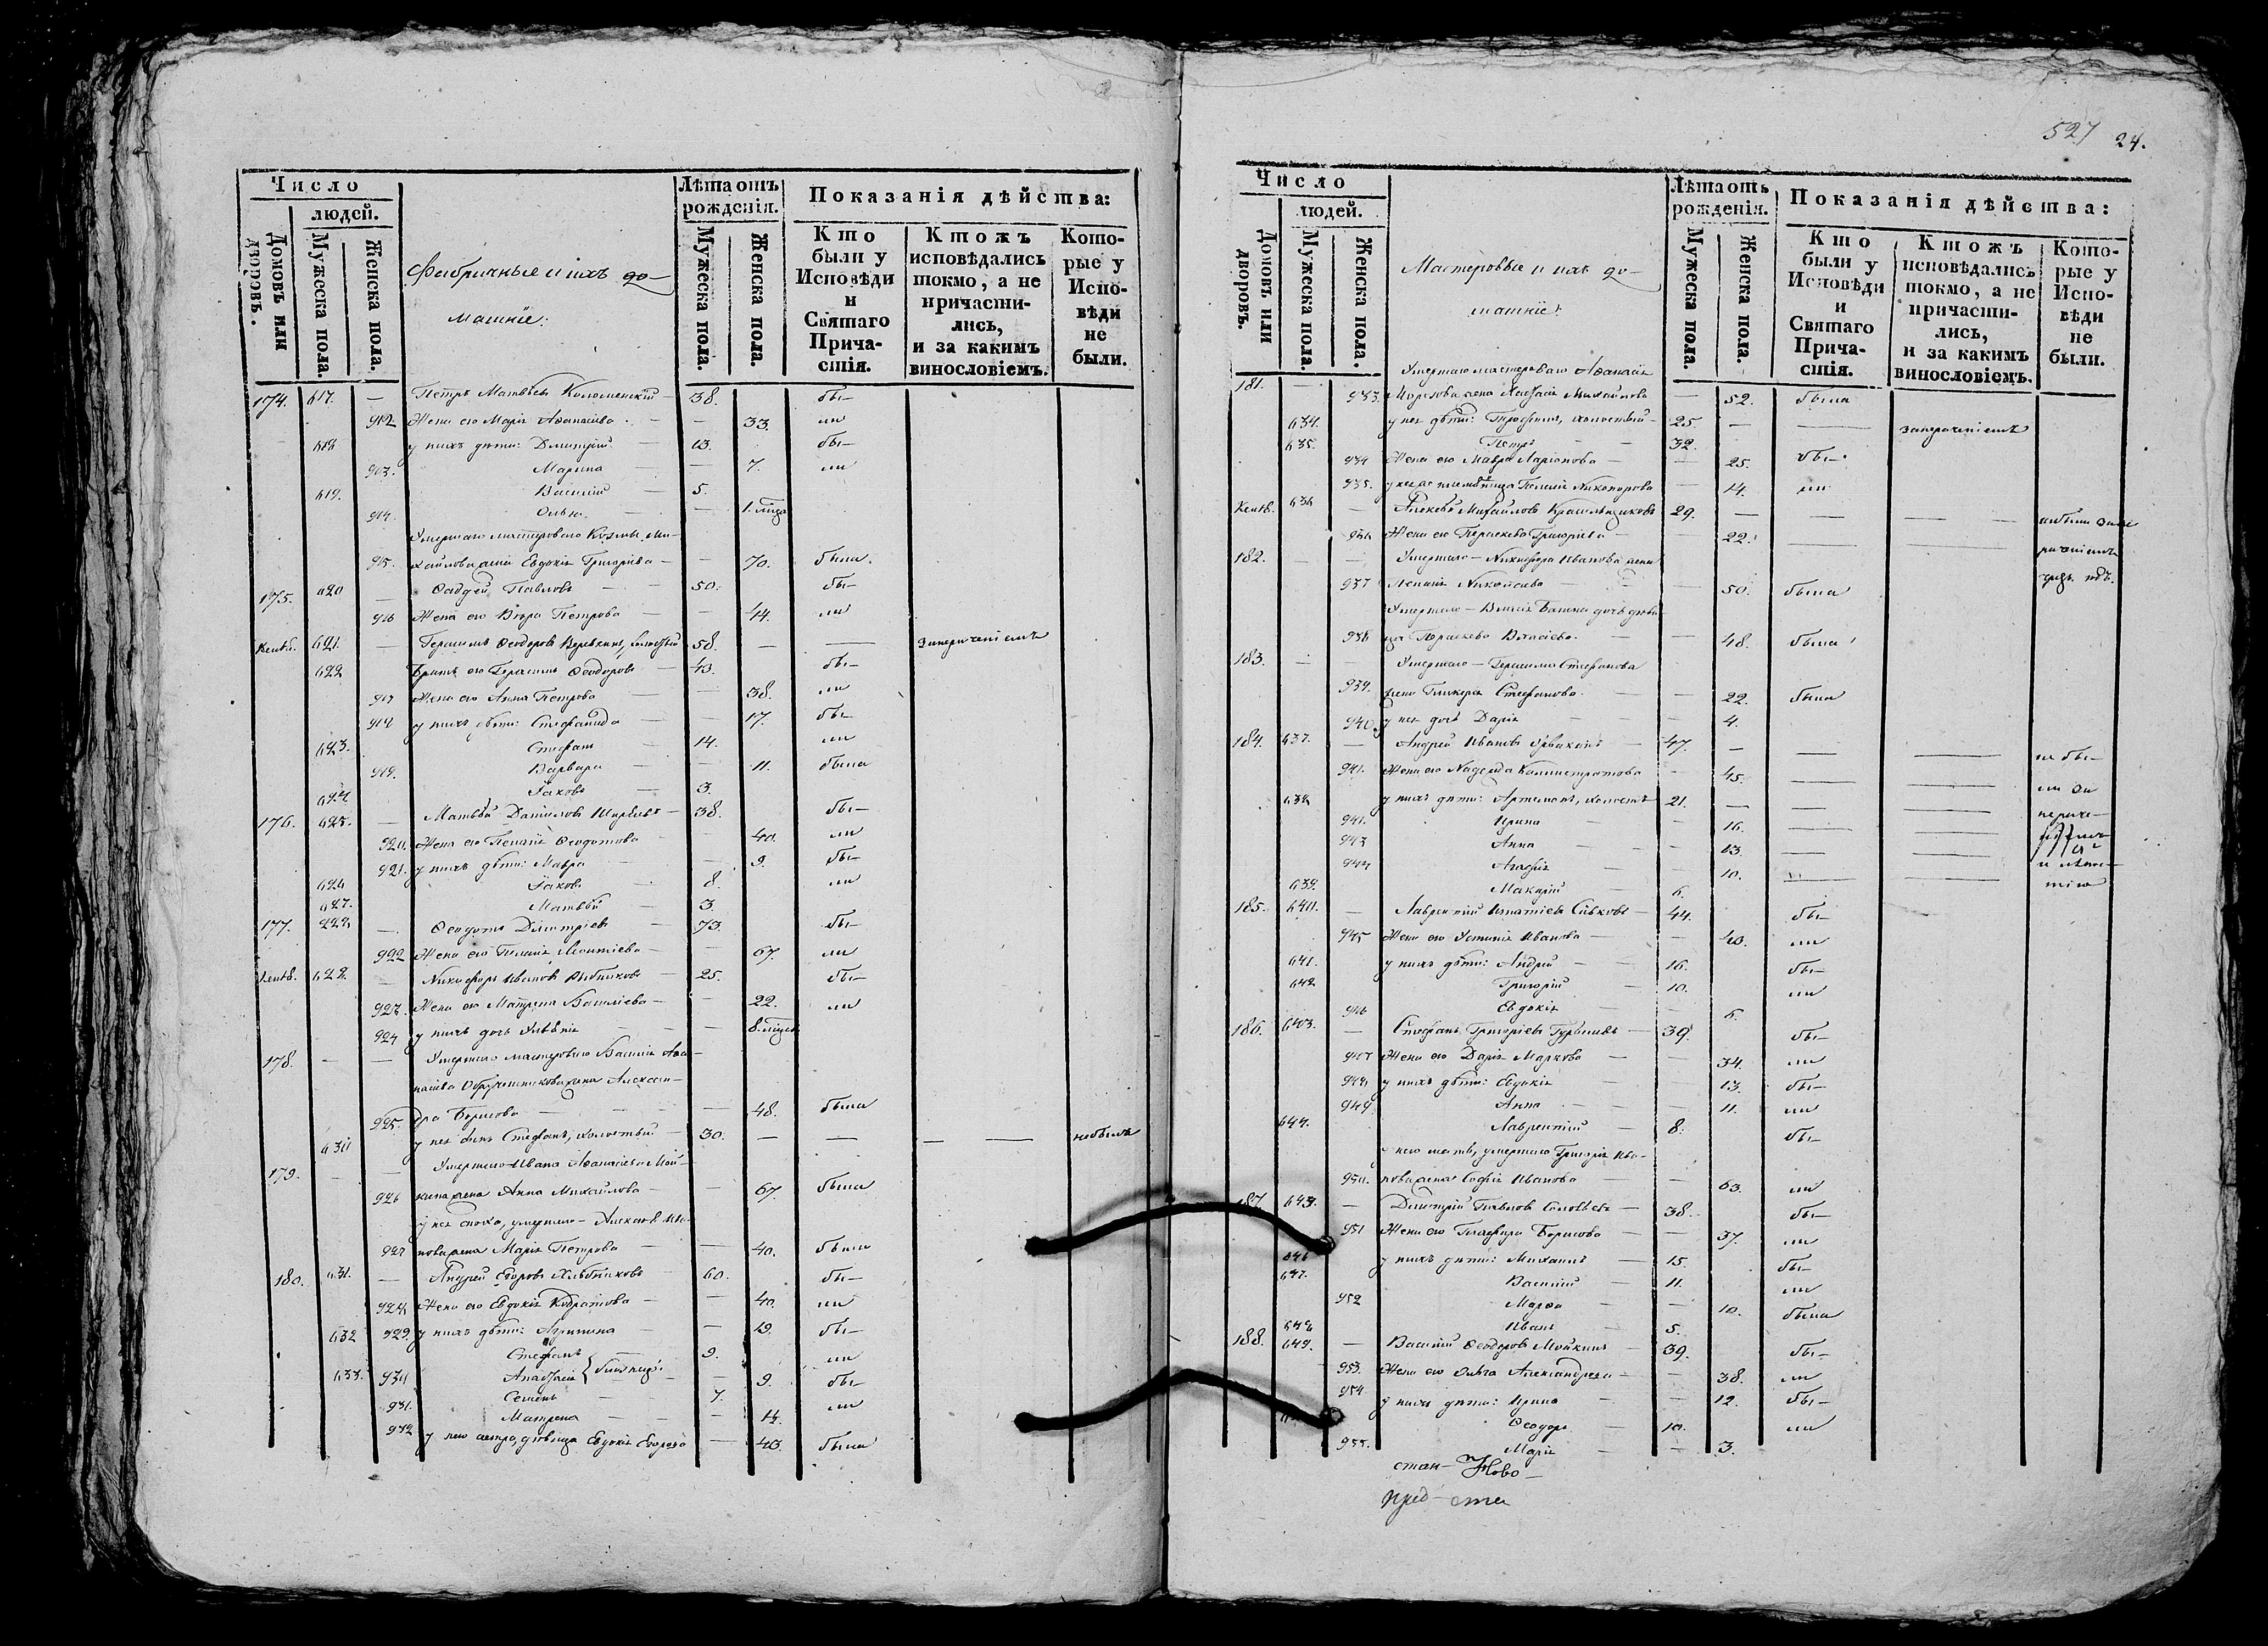 527 24.
Число
людей.
Домовъ или дворовъ.
Мужеска пола.
Женска пола.
Фабричные и ихъ до-
машніе:
Лѣта отъ
рожденія.
Мужеска пола.
Женска пола.
Показанія дѣйства:
Кто
были у
Исповѣди
и
Святаго
Прича-
стія.
Ктожъ
исповѣдались
токмо, а не
причасти-
лись,
и за какимъ
винословіемъ.
Кото-
рые у
Испо-
вѣди
не
были.
174. 617. — Петръ Матвѣевъ Коломенскій — 38. бы—
912. Жена его Марія Аѳанасіева — 33. ли
618 у нихъ дѣти: Димитрій — 13. бы—
913. Марина — 7. ли
619. Василій — 5.
914. Ольга — 1.
Умершаго мастероваго Козмы Ми-
915. хайлова жена Евдокія Григоріева — 70. была.
175. 620 — Ѳаддей Павловъ — 50. бы—
916 Жена его Вѣра Петрова — 44. ли
621. — Герасимъ Ѳеодоровъ холостый 58. — —
622 Братъ его Герасимъ Ѳеодоровъ — 43. бы—
917 Жена его Анна Петрова — 38. ли
918 у нихъ дѣти: Стефанида — 17. бы—
623. Стефанъ — 14. ли
919. Варвара — 11. была
624 Іаковъ — 3.
176. 625. — Матвѣй Даниловъ — 38. бы—
920. Жена его Пелагія Ѳеодотова — 40. ли
921. у нихъ дѣти: Мавра — 9. бы—
626 Іаковъ — 8. ли
627. Матвѣй — 3.
177. 628 — Ѳеодотъ Димитріевъ — 73. бы—
922 Жена его Пелагія Леонтіева — 67. ли
— Никифоръ Ивановъ — 25. бы—
923. Жена его Матрена Василіева — 22. ли
924 у нихъ дочь — 8.
178. — — Умершаго мастероваго Василія Аѳа-
насіева жена Алексан-
925. дра Борисова — 48. была
630 у нея сынъ Стефанъ, холостый — 30. — — — — небылъ
179. — — Умершаго Ивана Аѳанасіева Мой-
926 кина жена Анна Михайлова — 67. была
у нея сноха, умершаго —
927 нова жена Марія Петрова — 40. была
180. 631. — Андрей Егоровъ Хлѣбниковъ — 60. бы—
928 Жена его Евдокія — 40. ли
929. у нихъ дѣти: Агрипина — 19. бы—
632 Стефанъ 9. ли
930 Анастасія близнецы 9. бы—
633. Семенъ 7. ли
931. Матрена — 14.
932 у него сестра, дѣвица Евдокія Егорова — 43. была
Число
людей.
Домовъ или дворовъ.
Мужеска пола.
Женска пола.
Мастеровые и ихъ до-
машніе:
Лѣта отъ
рожденія.
Мужеска пола.
Женска пола.
Показанія дѣйства:
Кто
были у
Исповѣди
и
Святаго
Прича-
стія.
Ктожъ
исповѣдались
токмо, а не
причасти-
лись,
и за какимъ
винословіемъ.
Кото-
рые у
Испо-
вѣди
не
были.
181. — Умершаго мастероваго Аѳанасія
933. жена Михайлова — 52. была
634. у нея дѣти: холостый — 25. — —
635. Петръ — — 32.
934 Жена его Мавра Ларіонова — 25. бы—
935. Никонорова — 14. ли
636 — Алексѣй Михайловъ Красильщиковъ 29. — — — —
936 Жена его Параскева Григоріева — 22.
182. — — Умершаго — Никифора Иванова жена
937 Николаева — 50. была
Умершаго —
938 ца Параскева Власіева. — 48. была
183. — — Умершаго — Герасима Стефанова
939. жена Гликерія Стефанова — 22. была
940 у нея дочь Дарія — 4.
184. 637. — Андрей Ивановъ — 47. — — — не бы—
941. Жена его Надежда Каллистратова — 45. — —
638 у нихъ дѣти: холостъ 21. — — —
Ирина — 16. — —
943 Анна — 13. — —
944 Агафія — 10. — —
639. Макарій — 6.
185. 640. — Лаврентій Игнатіевъ Сивковъ — 44. бы—
945 Жена его Устинія Иванова — 40. ли
641. у нихъ дѣти: Андрей — 16. бы—
642 Григорій — 10. ли
946 Евдокія — 6.
186. 643. — Стефанъ Григоріевъ — 39. бы—
947 Жена его Дарія Маркова — 34. ли
948 у нихъ дѣти: Евдокія — 13. бы—
949 Анна — 11. ли
644. Лаврентій — 8. бы—
у него мать, умершаго Григорія Ива-
950. нова жена Софія Иванова — 63. ли
187. 645. — Димитрій Павловъ Соловьевъ — 38. бы—
951 Жена его Глафира Борисова — 37. ли
646 у нихъ дѣти: Михаилъ — 15. бы—
647. Василій — 11. ли
952 Марѳа — 10. была
648 Иванъ — 5.
188. 649. — Василій Ѳеодоровъ Мойкинъ — 39. бы—
953. Жена его Ольга Александрова — 38. ли
954 у нихъ дѣти: Ирина — 12. бы—
Ѳеодоръ — 10. ли
955. Марія — 3.